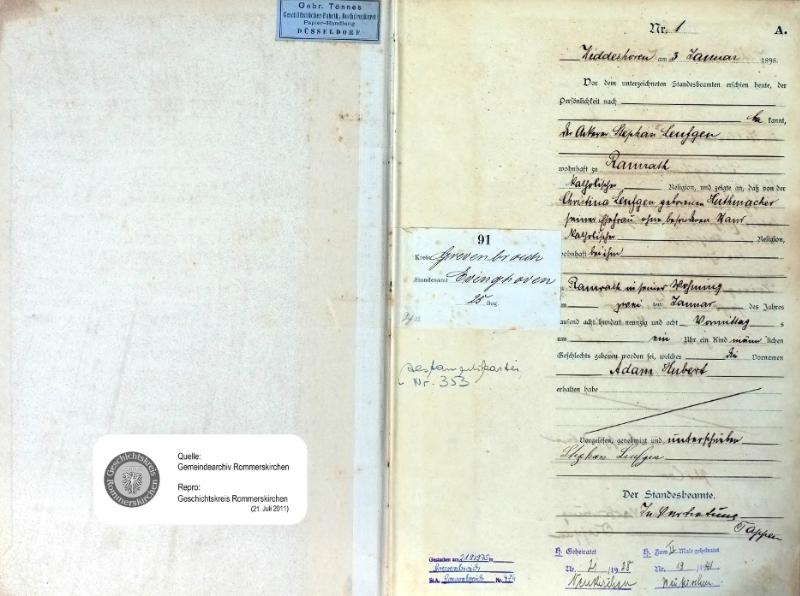 Gebr. Tönnes
Geschäftsbücher-Fabrik, Buchdruckerei
Papier-Handlung
DÜSSELDORF
Geschichtskreis
Rommerskirchen
Quelle:
Gemeindearchiv Rommerskirchen
Repro:
Geschichtskreis Rommerskirchen
(21. Juli 2011)
91
Kreis: Grevenbroich
Standesamt Evinghoven
Nr. 353
Nr. 1
A.
am 3 Januar 1898.
Vor dem unterzeichneten Standesbeamten erschien heute, der
Persönlichkeit nach
be kannt,
der Ackerer Stephan Leufgen
wohnhaft zu Ramrath
katholischer Religion, und zeigte an, daß von der
Christina Leufgen geborenen Huthmacher
seiner Ehefrau ohne besonderen
katholischer Religion,
wohnhaft bei ihm
Ramrath in seiner Wohnung
zwei ten Januar des Jahres
tausend acht hundert neunzig und acht Vormittag s
um ein Uhr ein Kind männ lichen
Geschlechts geboren worden sei, welches die Vornamen
Adam Hubert
erhalten habe
Vorgelesen, genehmigt und unterschrieben
Stephan Leufgen
Der Standesbeamte.
In Vertretung
Tappen
Gestorben am
Grevenbroich
StA. Grevenbroich Nr.
H. Geheiratet
Nr. 21 /1928
Neukirchen
H. Zum II Male geheiratet
Nr. 19 /
Neukirchen